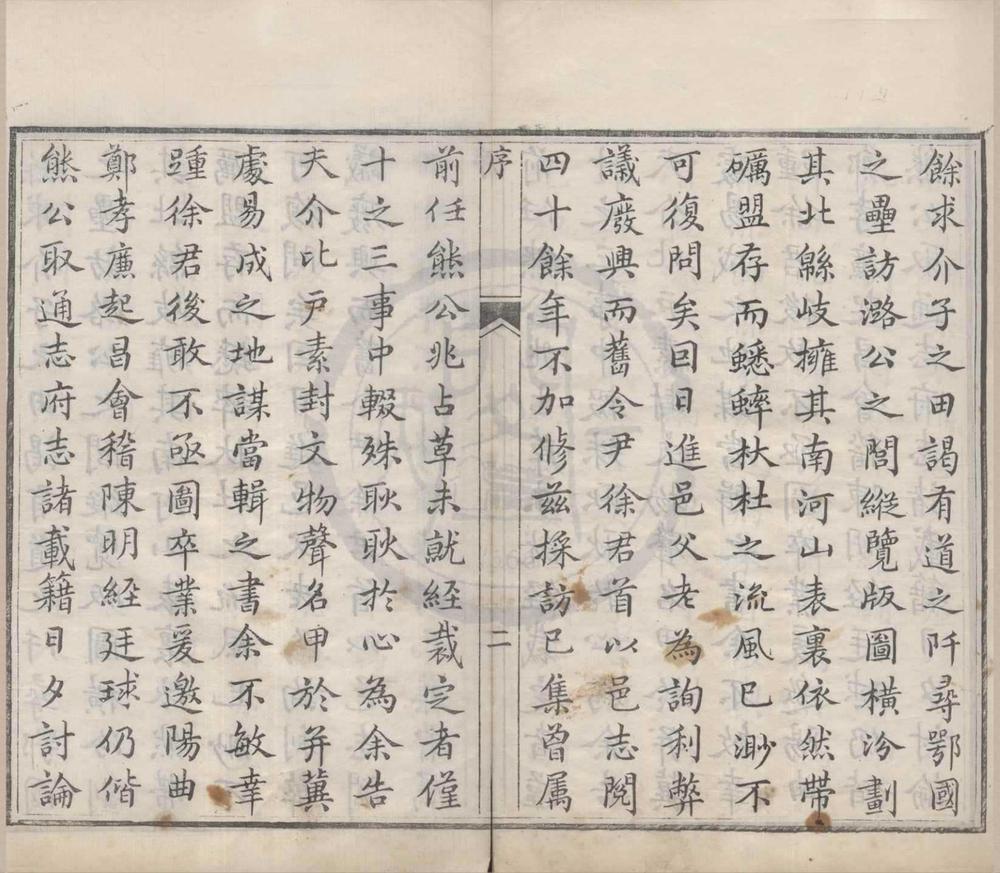 餘求介子之田謁有道之阡尋鄂國
之壘訪潞公之閭縱覽版圖橫汾劃
其北緜岐擁其南河山表裏依然帶
礪盟存而蟋蟀杕杜之流風已渺不
可復問矣囙日進邑父老為詢利弊
議廢興而舊令尹徐君首以邑志閱
四十餘年不加修茲採訪已集曾属
序
二
前任熊公兆占草未就經裁定者僅
十之三事中輟殊耿耿於心為余告
夫介比戸素封文物聲名甲於并冀
處易成之地謀當輯之書余不敏幸
踵徐君後敢不亟圖卒業爰邀陽曲
鄭孝廉起昌會稽陳明經廷球仍偕
熊公取通志府志諸載籍日夕討論